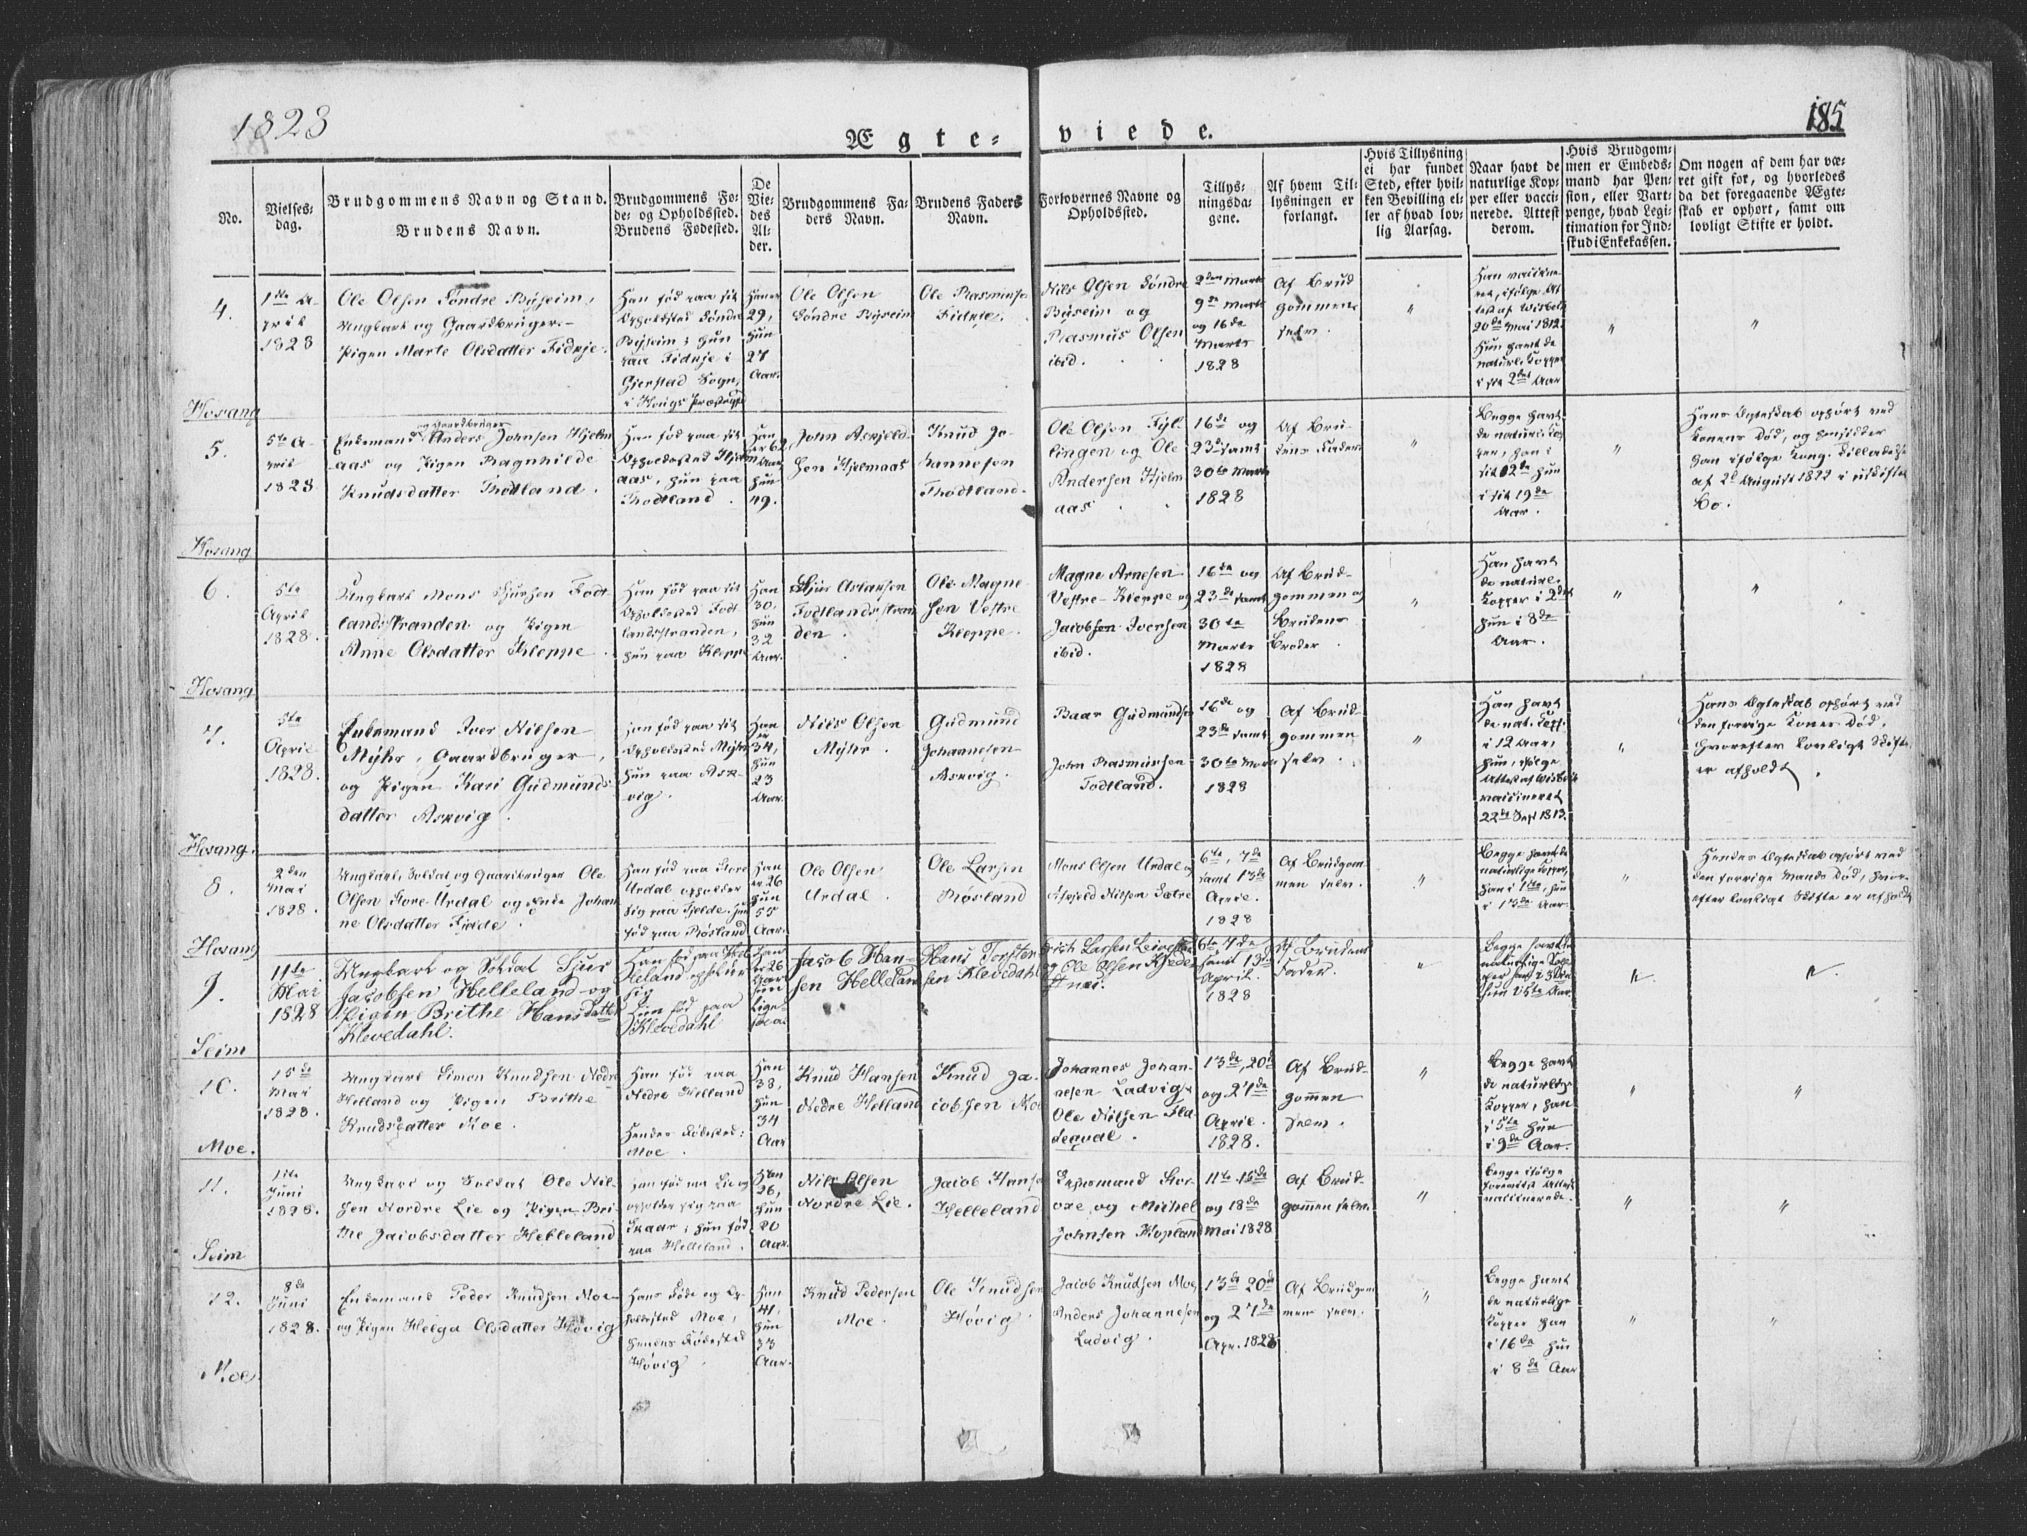 1828
185
Ægte-viede.
No.
Vielses-
dag.
Brudgommens Navn og Stand.
Brudens Navn.
Brudgommens Fø-
de- og Opholdssted.
Brudens Fødested.
De
Vie-
des
Al-
der.
Brudgommens Fa-
ders Navn.
Brudens Faders
Navn.
Forlovernes Navne og
Opholdssted.
Tillys-
ningsda-
gene.
Af hvem Til-
lysningen er
forlangt.
Hvis Tillysning
ei har fundet
Sted, efter hvil-
ken Bevilling el-
ler af hvad lov-
lig Aarsag.
Naar havt de
naturlige Kop-
per eller vacci-
nerede. Attest
derom.
Hvis Brudgom-
men er Embeds-
mand har Pen-
sion, eller Vart-
penge, hvad Legi-
timation for Ind-
skud i Enkekassen.
Om nogen af dem har væ-
ret gift før, og hvorledes
da det foregaaende Ægte-
skab er ophørt, samt om
lovligt Skifte er holdt.
4.
1ste A-
pril
1828
Ole Olsen Søndre Bysheim,
Ungkarl og Gaardbruger-
Pigen Marte Olsdatter Fidnje.
Han
29,
Hun
27
Aar.
Ole Olsen
Søndre
Ole Rasmusen
Fidnje.
Nils Olsen Søndre
og
Rasmus Olsen
ibid.
2den Marts
9de Marts
og 16de
Marts
1828
Af Brud
gommen
selv.
Hosang
5.
5te A-
pril
1828
og Gaardbruger
Enkemand Anders Johnsen Hjelm
aas og Pigen Ragnhilde
Knudsdatter Thodtland.
Han
er 62
Aar
Hun
49.
John Askjeld-
sen Hjelmaas
Knud Jo-
hannesen
Thodtland.
Ole Olsen Fyl-
lingen og Ole
Andersen Hjelm
aas
16de og
23de samt
30te Marts
1828
Af Bru-
dens Fader
Begge havt
de naturl. Kop-
per, han i
sit 12de Hun
i sit 19de
Aar.
Hans Ægteskab ophørt ved
Konens Død, og
Han ifølge Kong. Tilladelse
af 2d August 1822 i uskiftet
Bo.
Hosang
6.
5te
April
1828.
Ungkarl Mons Sjursen Fodt
landsstranden og Pigen
Anne Olsdatter Kleppe
Han født paa sit
Opholdssted Fodt
landsstranden,
Hun paa Kleppe
Han
30,
Hun
32
Aar.
Sjur Aslaksen
Fodtlandsstran
den.
Ole Magne-
sen Vestre
Kleppe.
Magne Arnesen
Vestre-Kleppe og
Jacobsen Iversen
ibid.
16de og
23de samt
30te
Marts
1828
Af Brud-
gommen og
Brudens
Broder
Han havt
de naturl.
Kopper i 2det
Hun i 8de
Aar.
Hosang
7.
5te
April
1828.
Enkemand Iver Nilsen
Myhr, Gaardbruger,
og Pigen Kari Gudmunds
datter Askvig.
Han født paa sit
Opholdssted Myhr
Hun paa Ask-
vig.
Han
er
34,
Hun
23
Aar.
Nils Olsen
Myhr.
Gudmund
Johannesen
Askvig.
Baar Gudmundsen
John Rasmusen
Fodtland.
16de og
23de samt
30te Marts
1828
Af Brud-
gommen
selv.
Han havt
de nat. Kopp.
i 12 Aar,
Hun, ifølge
Attest af Wisbech
vaccineret
22de Sept 1813.
Hans Ægteskab ophørt ved
den forrige Kones Død,
hvorefter lovligt Skifte
er afholdt.
Hosang.
8.
2den
Mai
1828.
Ungkarl, Soldat og Gaardbruger Ole
Olsen Store Urdal og Enke Johan
ne Olsdatter
Han født paa Store
Urdal opholder
sig paa Fjelde. Hun
født paa Røsland
Han
er 26
Hun
55
Aar.
Ole Olsen
Urdal
Ole Larsen
Røsland
Mons Olsen Urdal og
Askjeld Nilsen Sætre
6te, 7de
samt 13de
April.
1828
Af Brudgom-
men selv.
Begge havt de
naturlige Kopper,
Han i 1ste, Hun
i 13de Aar.
Hendes Ægteskab ophørt ved
den forrige Mands Død, hvor-
efter lovligt Skifte er afholdt
Hosang
9.
11te
Mai
1828
Ungkarl og Soldat Sjur
Jacobsen Helleland og
Pigen Brithe Hansdatter
Klevedahl.
Hun født paa
Klevedahl
Jacob Han-
sen Helleland
Hans Torsten
sen Klevedahl
Larsen
og Ole Olsen
6te 7de
samt 13de
April.
1828
Af Brudens
Fader.
Seim
10.
15de
Mai
1828.
Ungkarl Simon Knudsen Nedre
Helland og Pigen Brithe
Knudsdatter Moe.
Han født paa
Nedre Helland
Hendes Fødested:
Moe.
Han
38,
Hun
34
Aar
Knud Hansen
Nedre Helland
Knud Ja-
cobsen Moe
Johannes Johan-
nesen Ladvig,
Ole Nilsen
13de, 20de
og 27de
April.
1828.
Af Brud-
gommen
selv.
Begge havt
de naturlige
Kopper, Han
i 5te Hun
i 9de Aar.
Moe.
11.
1ste
Juni
1828.
Ungkarl og Soldat Ole Nil-
sen Nordre Lie og Pigen Bri-
the Jacobsdatter Helleland
Han født paa Lie og
opholder sig paa
Skaar; Hun født
paa Helleland.
Han
26,
Hun
20
Aar.
Nils Olsen
Nordre Lie.
Jacob Hansen
Helleland
og Michel
Johnsen Kopland
11te 15de
og 18de
Mai 1828
Af Brud-
gommen selv.
Begge ifølge
foreviste Attest
vaccinerede.
Seim
12.
8de
Juni
1828.
Enkemand Peder Knudsen Moe
og Pigen Helga Olsdatter Høvig
Hans Føde og Op-
holdssted Moe,
Hendes Fødested
Høvig
Han
41
Hun
33
Aar.
Knud Pedersen
Moe.
Ole Knudsen
Høvig
Jacob Knudsen Moe,
Anders Johannesen
Ladvig.
13de 20de
og 27de
Apr. 1828
Af Brudgom
men selv.
Begge havt
de naturlige
Kopper Han
i 16de Hun
i 8de Aar
Moe.